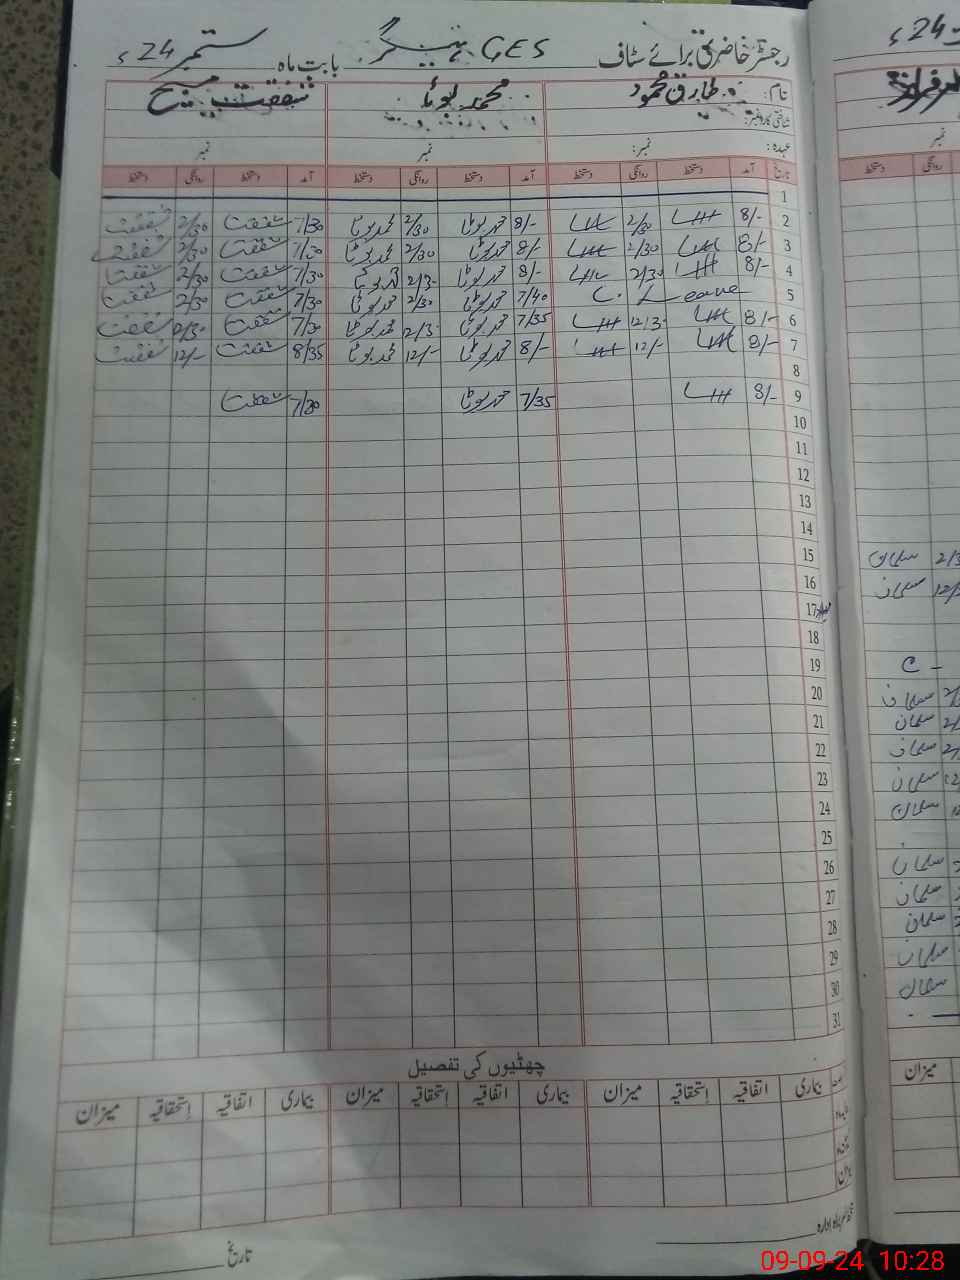 رجسٹر حاضری برائے سٹاف GES بابت ماہ ستمبر 24ء
نام: طارق محمود محمد بوٹا شفقت مسیح
شناختی کارڈ نمبر:
عہدہ: نمبر: نمبر نمبر
تاریخ آمد دستخط روانگی دستخط آمد دستخط روانگی دستخط آمد دستخط روانگی دستخط
1
2 8/- 2/30 8/- محمد بوٹا 2/30 محمد بوٹا 7/30 شفقت 2/30 شفقت
3 8/- 2/30 8/- محمد بوٹا 2/30 محمد بوٹا 7/30 شفقت 2/30 شفقت
4 8/- 2/30 8/- محمد بوٹا 2/3- محمد بوٹا 7/30 شفقت 2/30 شفقت
5 C. Leave 7/40 محمد بوٹا 2/30 محمد بوٹا 7/30 شفقت 2/30 شفقت
6 8/- 12/3- 7/35 محمد بوٹا 12/3- محمد بوٹا 7/30 شفقت 12/30 شفقت
7 8/- 12/- 8/- محمد بوٹا 12/- محمد بوٹا 8/35 شفقت 12/- شفقت
8
9 8/- 7/35 محمد بوٹا 7/30 شفقت
10
11
12
13
14
15
16
17
18
19
20
21
22
23
24
25
26
27
28
29
30
31
چھٹیوں کی تفصیل
بیماری اتفاقیہ استحقاقیہ میزان بیماری اتفاقیہ استحقاقیہ میزان بیماری اتفاقیہ استحقاقیہ میزان
تاریخ
24ء
نمبر
دستخط روانگی
سلمان
سلمان
C -
سلمان
سلمان
سلمان
سلمان
سلمان
سلمان
سلمان
سلمان
سلمان
سلمان
میزان
09-09-24 10:28